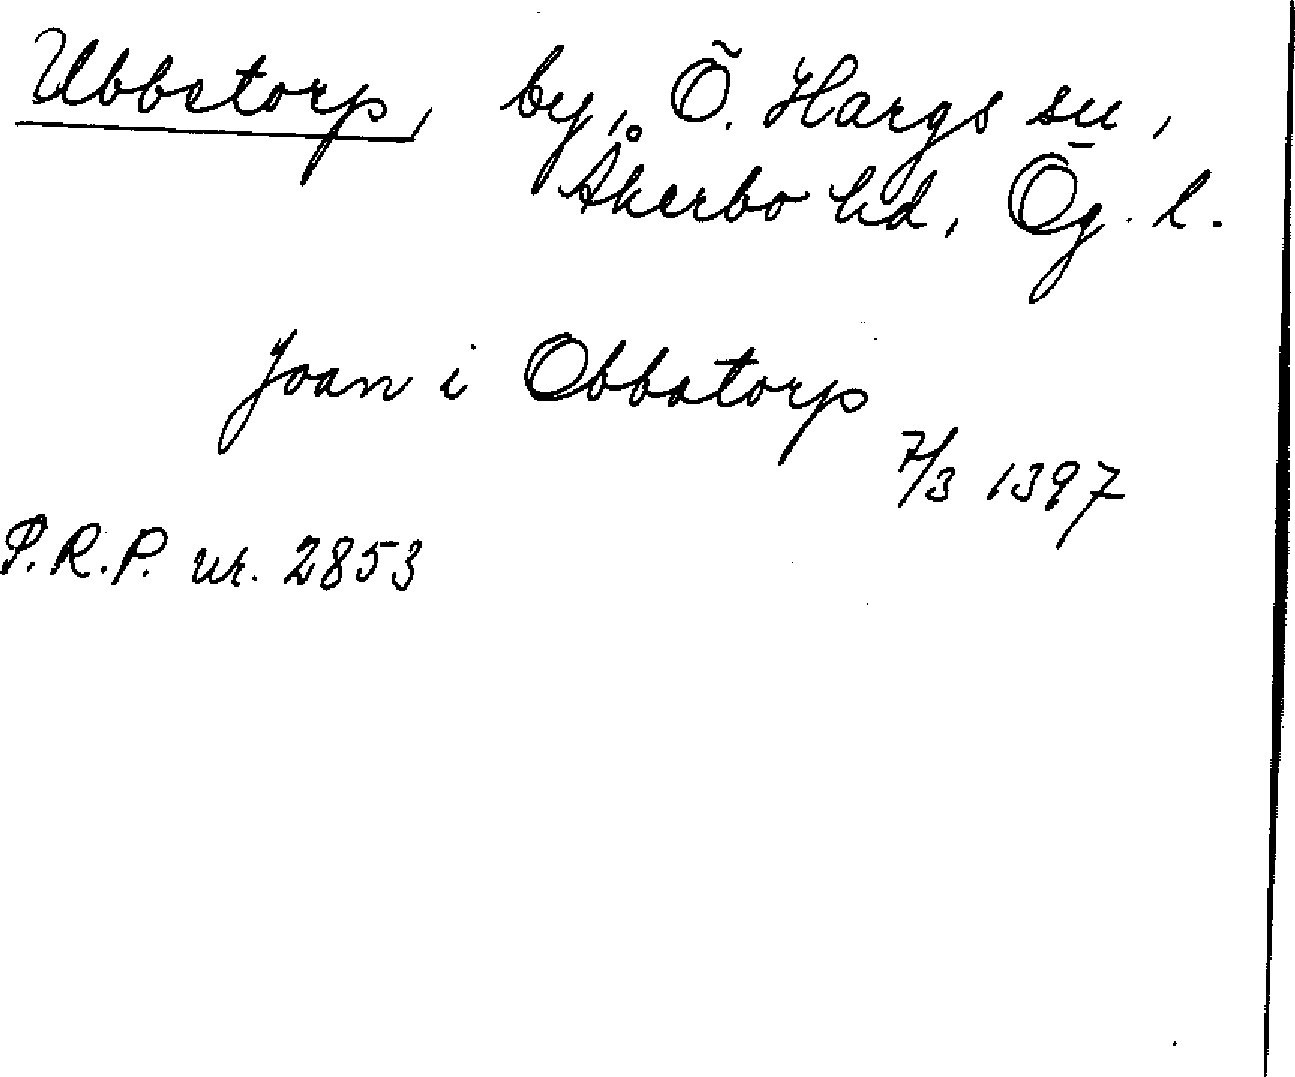 Ubbetorp, by, Ö. Hargs sn,
Åkerbo hd, Ög. l.
Joan i Obbatorp
7/3 1397
P.R.P. nr. 2853